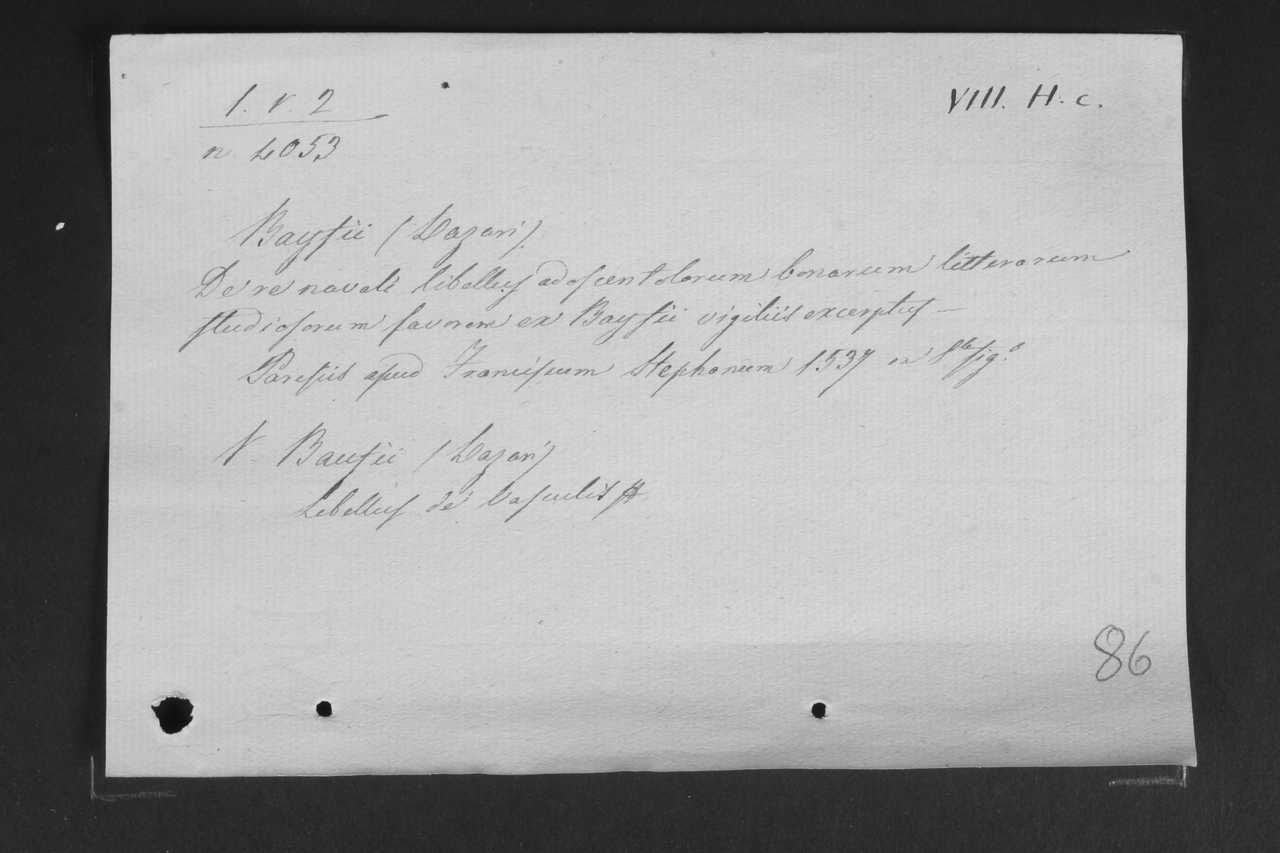 1. V. 2
VIII. H. c.
n 4053
Bayfii (Lazari)
De re navali libellus adoscentolorum bonarum litterarum
studiosorum favorem ex Bayfii vigiliis excerptus —
Parisiis apud Franciscum Stephanum 1537 in 8º fig.º
V. Baufii (Lazari)
Libellus de Vasculis
86